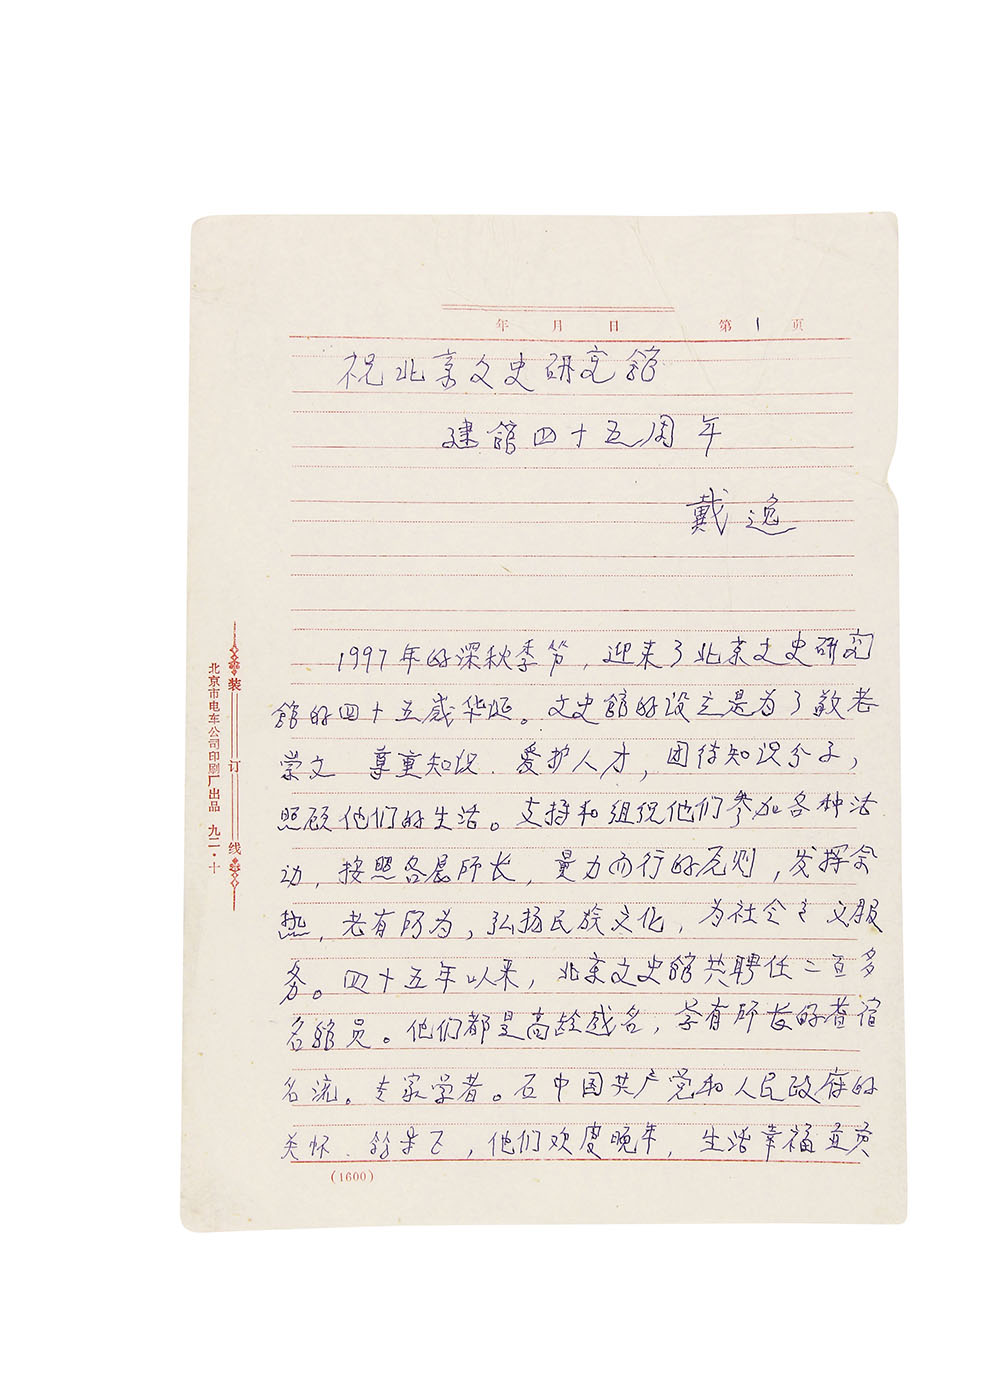 年 月 日 第 1 页
祝北京文史研究馆
建馆四十五周年
戴逸
1997年的深秋季节，迎来了北京文史研究
馆的四十五盛华诞。文史馆的设立是为了敬老
崇文 尊重知识、爱护人才，团结知识分子，
照顾他们的生活。支持和组织他们参加各种活
动，按照各展所长，量力而行的原则，发挥余
热，老有所为，弘扬民族文化，为社会主义服
务。四十五年以来，北京文史馆共聘任二百多
名馆员。他们都是高龄盛名，学有所长的耆宿
名流。专家学者。在中国共产党和人民政府的
关怀、下，他们欢度晚年，生活幸福
(1600)
装订线
北京市电车公司印刷厂出品 九二·十